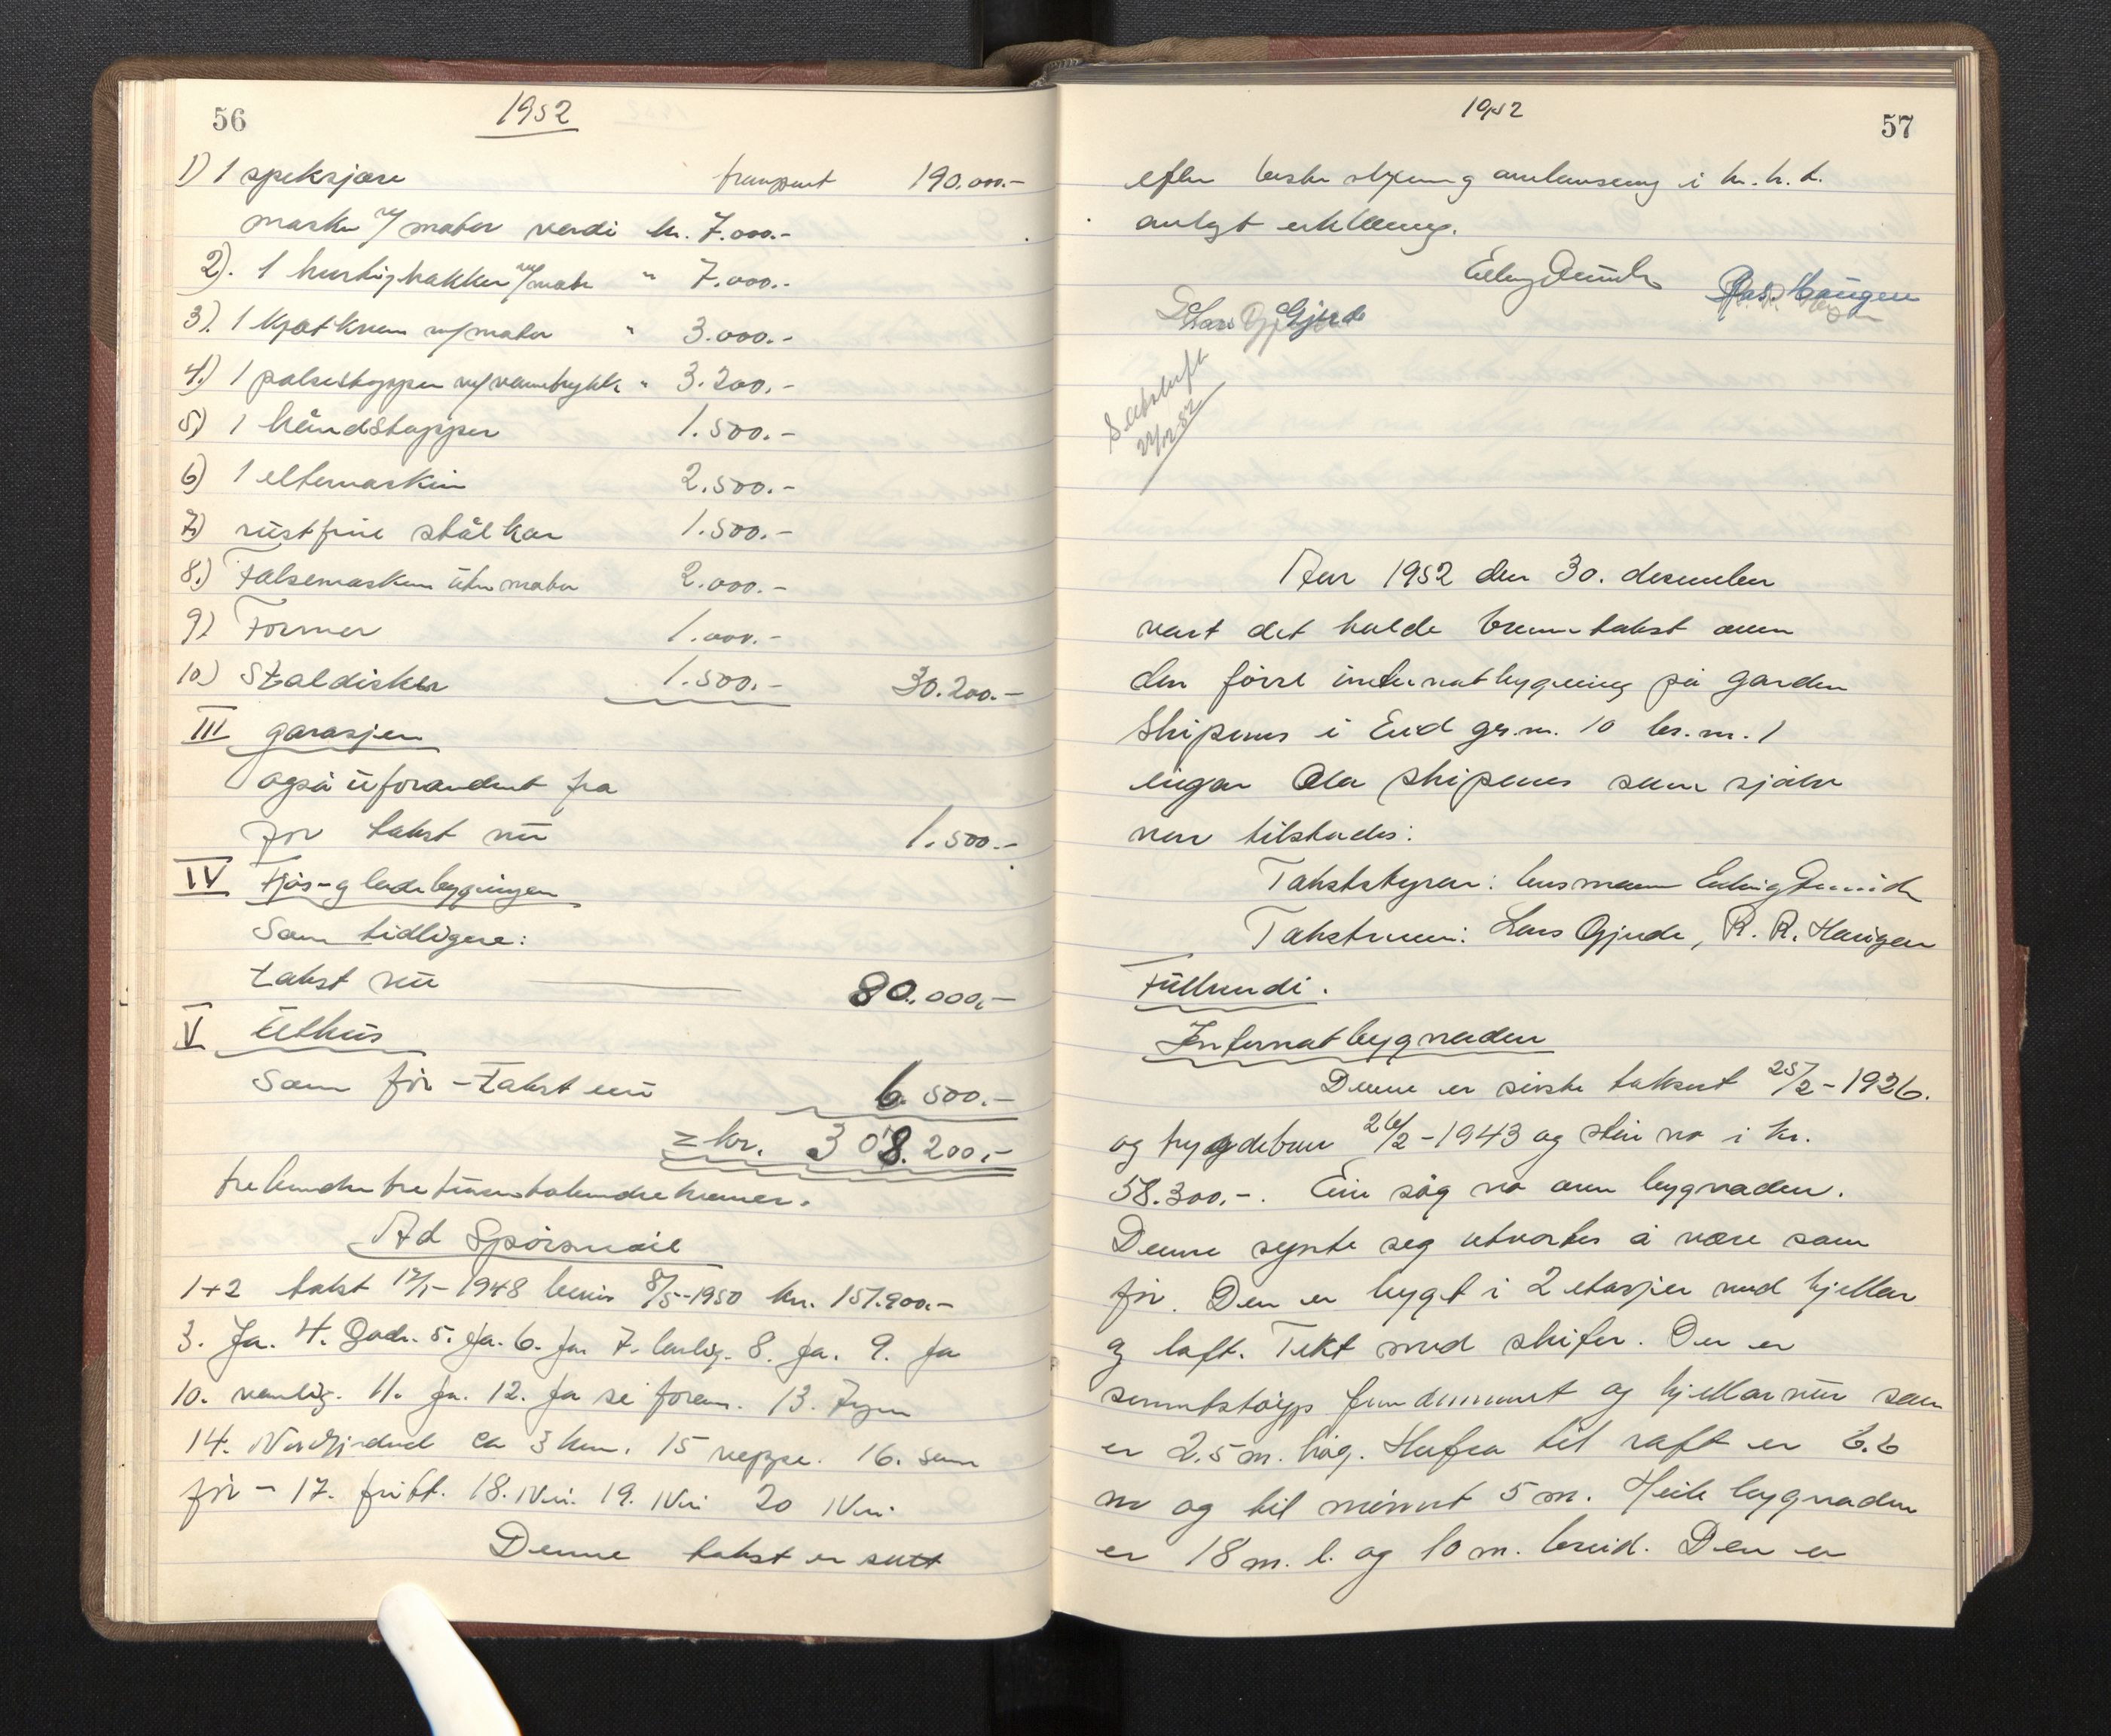 56
1952
1) 1 spekskjære transport 190.000.-
maskin m/motor verdi kr. 7.000.-
2). 1 hurtighakker m/motor " 7.000.-
3). 1 kjøtkvern m/motor " 3.000.-
4.) 1 pølsestopper m/vanntrykk " 3.200.-
5) 1 håndstopper 1.500.-
6) 1 eltemaskin 2.500.-
7) rustfrie stålkar 1.500.-
8.) Falsemaskin uten motor 2.000.-
9) Former 1.000.-
10) Staldisker 1.500.- 30.200.-
III garasjen
også uforandret fra
før takst nu 1.500.-
IV Fjøs- og ladebygningen
Som tidligere:
takst nu 80.000,-
V Uthus
Som før - takst nu 6.500.-
= kr. 308.200,-
trehundre tusentohundrekroner.
Ad Spørsmål
1+2 takst 12/1- 1948 bevis 8/5-1950 kr. 157.900.-
3. Ja. 4. Gode. 5. Ja. 6. Ja 7. lovlig. 8. Ja. 9. Ja
10. vanlig. 11. Ja. 12. Ja se foran. 13. Ingen
14. Nordfjordeid ca 3 km. 15 neppe. 16. som
før - 17. fritt. 18. Nei. 19. Nei 20 Nei.
Denne takst er satt
1952
57
efter beste skjønn og overbevisning i h.h.t.
avlagt erklæring.
Erling
Ras. Haugen
Lars Gjerde
Seksluft
22/12-52
Aar 1952 den 30. desember
vart det halde branntakst over
den førre internatbygning på garden
Skipenes i Eid gr.nr. 10 br.nr. 1
eigar Ola Skipenes som sjølv
var tilstades:
Takststyrar: lensmann Erling
Takstmenn: Lars Gjerde, R. R. Haugen
Fullverdi.
Internatbygnaden
Denne er sist taksert 25/2-1926.
og trygdebrev 26/2-1943 og står no i kr.
58.300,-. Ein såg no over bygnaden.
Denne synte seg utvortes å være som
før. Den er bygt i 2 etasjer med kjellar
og loft. Tekt med skifer. Der er
sementstøypt fundament og kjellarmur som
er 2.5 m. høg. Herfra til raft er 6.6
m og til mønet 5 m. Heile bygnaden
er 18 m. l. og 10 m. breid. Den er